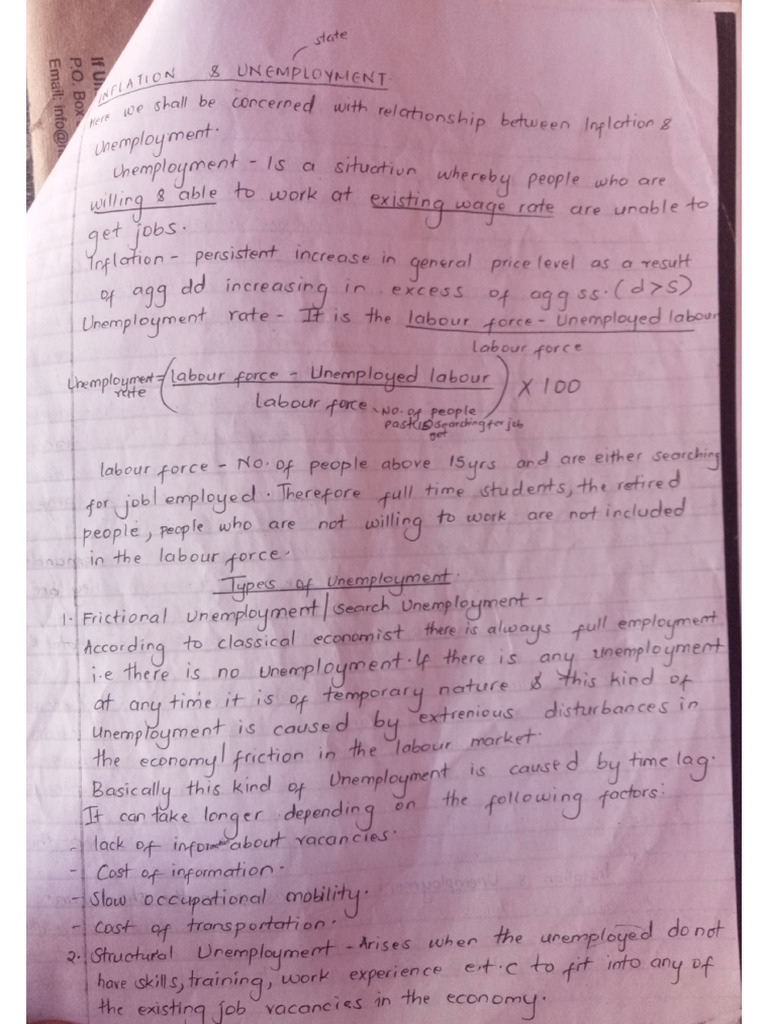 If U
P.O. Box
Email: info@
state
INFLATION & UNEMPLOYMENT.
Here we shall be concerned with relationship between Inflation &
Unemployment.
Unemployment - Is a situation whereby people who are
willing & able to work at existing wage rate are unable to
get jobs.
Inflation - persistent increase in general price level as a result
of agg dd increasing in excess of agg ss. (d>s)
Unemployment rate - It is the labour force - Unemployed labour
labour force
Unemployment rate = (labour force - Unemployed labour / labour force) X 100
No. of people
past 15 searching for job
get
labour force - No. of people above 15yrs and are either searching
for job/employed. Therefore full time students, the retired
people, people who are not willing to work are not included
in the labour force.
Types of Unemployment.
1. Frictional Unemployment/search Unemployment -
According to classical economist there is always full employment
i.e there is no Unemployment. If there is any unemployment
at any time it is of temporary nature & this kind of
Unemployment is caused by extrenious disturbances in
the economy/friction in the labour market.
Basically this kind of Unemployment is caused by time lag.
It can take longer depending on the following factors:
- lack of infor about vacancies.
- Cost of information.
- Slow occupational mobility.
- Cost of transportation.
2. Structural Unemployment - Arises when the unemployed do not
have skills, training, work experience e.t.c to fit into any of
the existing job vacancies in the economy.